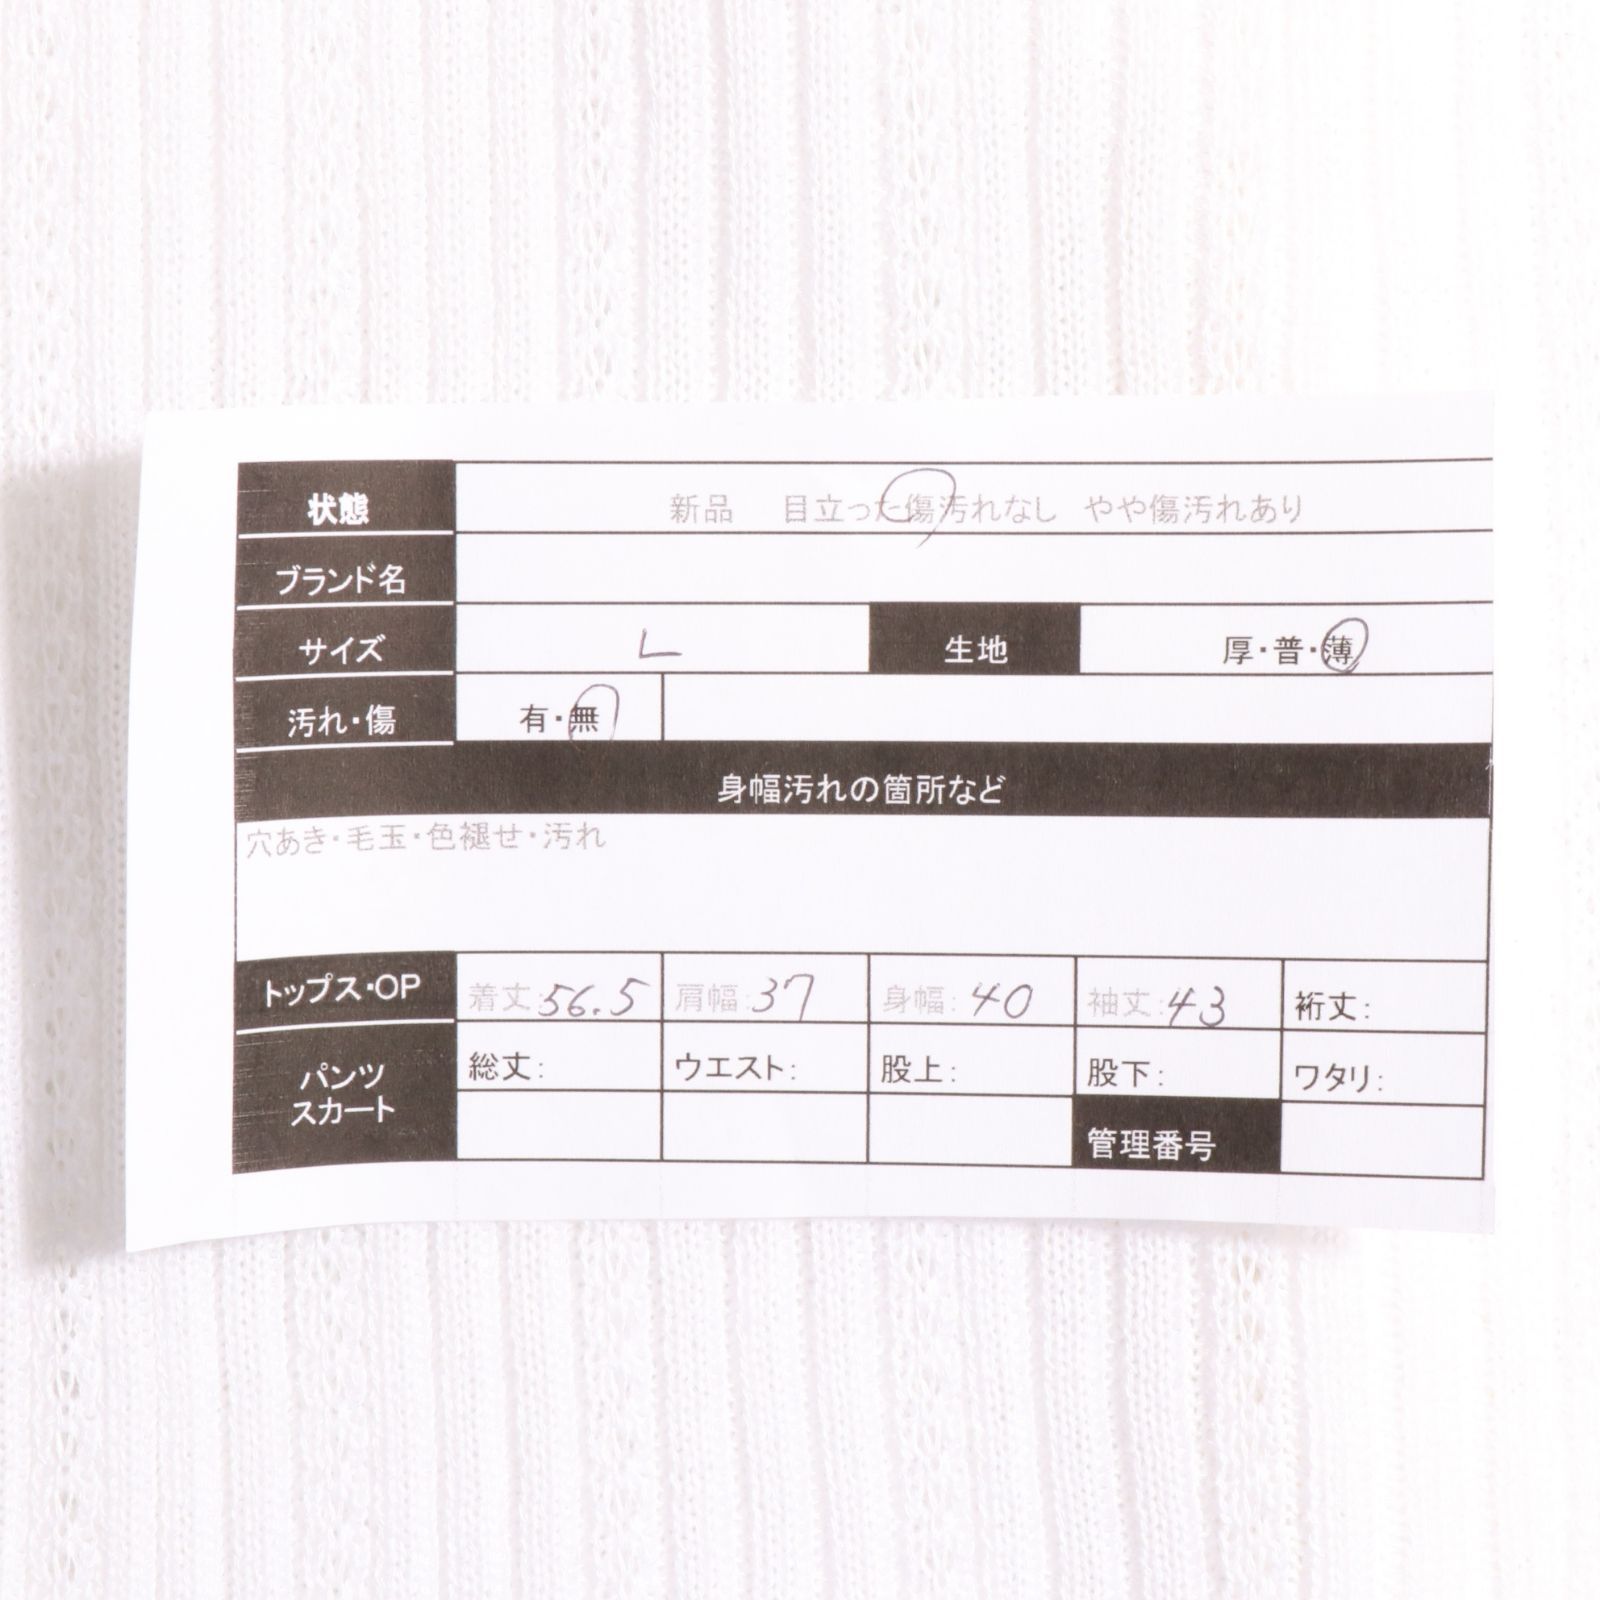 状態 新品 目立った傷汚れなし やや傷汚れあり
ブランド名
サイズ L 生地 厚・普・薄
汚れ・傷 有・無
身幅汚れの箇所など
穴あき・毛玉・色褪せ・汚れ
トップス・OP 着丈:56.5 肩幅:37 身幅:40 袖丈:43 裄丈:
パンツ
スカート
総丈: ウエスト: 股上: 股下: ワタリ:
管理番号